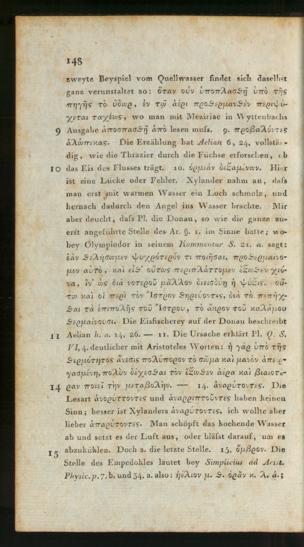 148
zweyte Beyspiel vom Quellwasser findet sich daselbst
ganz verunstaltet so: ὅταν οὖν ὑποπλασθῇ ὑπὸ τῆς
πηγῆς τὸ ὕδωρ, ἐν τῷ ἀέρι προθερμανθὲν περιψύ-
χεται ταχέως, wo man mit Meziriac in Wyttenbachs
9 Ausgabe ἀποσπασθῇ ἀπὸ lesen muſs. 9. προβαλόντες
ἀλώπεκας. Die Erzählung hat Aelian 6, 24. vollstän-
dig, wie die Thrazier durch die Füchse erforschen, ob
10 das Eis des Flusses trägt. 10. ὁρμιὰν δεξαμέναν. Hier
ist eine Lücke oder Fehler. Xylander nahm an, daſs
man erst mit warmen Wasser ein Loch schmolz, und
hernach dadurch den Angel ins Wasser brachte. Mir
aber deucht, daſs Pl. die Donau, so wie die ganze zu-
erst angeführte Stelle des Ar. §. 1. im Sinne hatte; wo-
bey Olympiodor in seinem Kommentar S. 21. a. sagt:
ἐὰν θελήσωμεν ψυχρότερόν τι ποιῆσαι, προθερμαίνο-
μεν αὐτὸ, καὶ εἶθ' οὕτως περιπλάττομεν ἔξωθεν χιό-
να, ἵν' ὡς διὰ νοτεροῦ μᾶλλον διεισδύῃ ἡ ψύξις. οὕ-
τω καὶ οἱ περὶ τὸν Ἴστρον θηρεύοντες, διὰ τὸ πεπῆχ-
θαι τὰ ἐπιπολῆς τοῦ Ἴστρου, τὸ ἄκρον τοῦ καλάμου
θερμαίνουσι. Die Eisfischerey auf der Donau beschreibt
11 Aelian h. a. 14, 26. — 11. Die Ursache erklärt Pl. Q. S.
VI, 4. deutlicher mit Aristoteles Worten: ἡ γὰρ ὑπὸ τῆς
θερμότητος ἄνεσις πολύπορον τὸ σῶμα καὶ μανὸν ἀπερ-
γασμένη, πολὺν δέχεσθαι τὸν ἔξωθεν ἀέρα καὶ βιαιοτέ-
14 ραν ποιεῖ τὴν μεταβολήν. — 14. ἀναρύτοντες. Die
Lesart ἀνορύττοντες und ἀναρριπτοῦντες haben keinen
Sinn; besser ist Xylanders ἀναρύτοντες, ich wollte aber
lieber ἀπαρύτοντες. Man schöpft das kochende Wasser
ab und setzt es der Luft aus, oder bläſst darauf, um es
15 abzukühlen. Doch s. die letzte Stelle. 15. ὄμβρον. Die
Stelle des Empedokles lautet bey Simplicius ad Arist.
Physic. p. 7. b. und 34. a. also: ἠέλιον μ. θ. ὁρᾶν κ. λ. ἁ.;